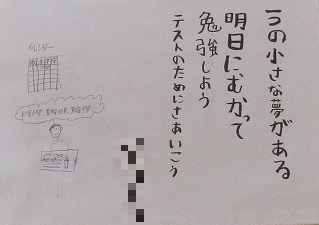 1つの小さな夢がある
明日に、むかって
勉強しよう
テストのためにさあいこう
カレンダー